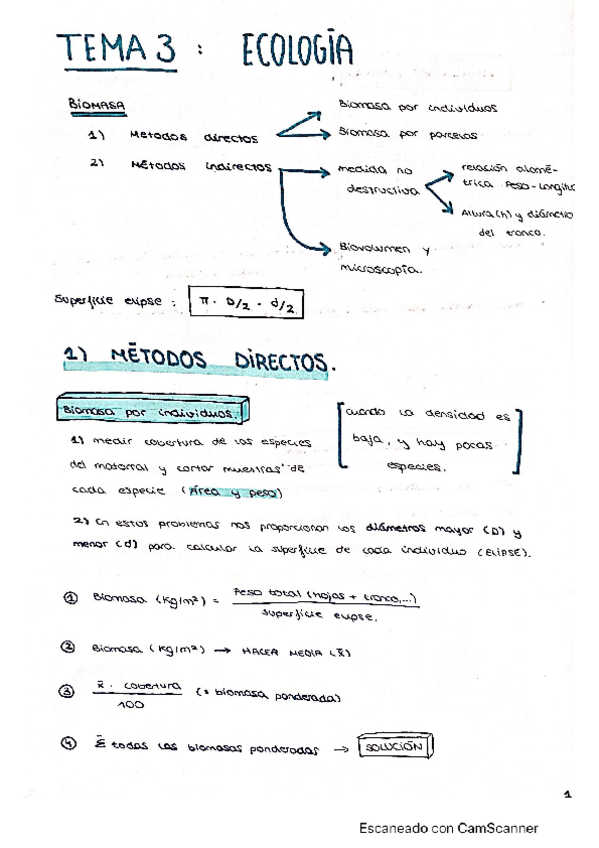 TEMA 3 : ECOLOGÍA
BIOMASA
1) Metodos directos
Biomasa por individuos
Biomasa por parcelas
2) Métodos indirectos
medida no
destructiva
relación alomé-
trica Peso-Longitud
Altura (h) y diámetro
del tronco.
Biovolumen y
microscopía.
Superficie elipse : π · D/2 · d/2
1) MÉTODOS DIRECTOS.
Biomasa por individuos.
[cuando la densidad es
baja, y hay pocas
especies.]
1) medir cobertura de las especies
del matorral y cortar muestras de
cada especie (Área y peso)
2) En estos problemas nos proporcionan los diámetros mayor (D) y
menor (d) para calcular la superficie de cada individuo (ELIPSE).
① Biomasa (kg/m²) = Peso total (hojas + tronco,...)
superficie elipse.
② Biomasa (kg/m²) → HACER MEDIA (x̄)
③ x̄ · cobertura (= biomasa ponderada)
100
④ Σ todas las biomasas ponderadas → SOLUCIÓN
1
Escaneado con CamScanner